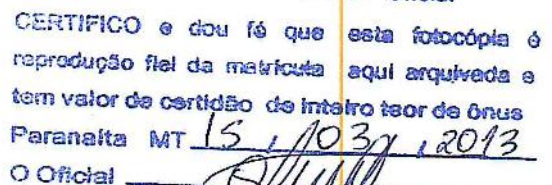 CERTIFICO e dou fé que esta fotocópia é
reprodução fiel da matrícula aqui arquivada e
tem valor de certidão de inteiro teor de ônus
Paranaíta MT 15 / 03 / 2013
O Oficial